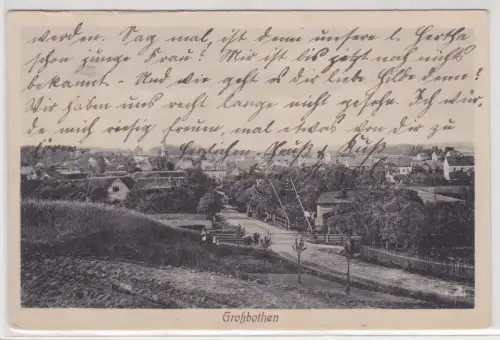 werden. Sag mal, ist denn unsere l. Hertha
schon junge Frau? Mir ist bis jetzt noch nichts
bekannt. - Und wie geht es dir liebe Hilde denn?
Wir haben uns recht lange nicht gesehn. Ich wür-
de mich riesig freuen, mal etwas von dir zu
hören. Herzlichen Gruß & Kuß
Großbothen